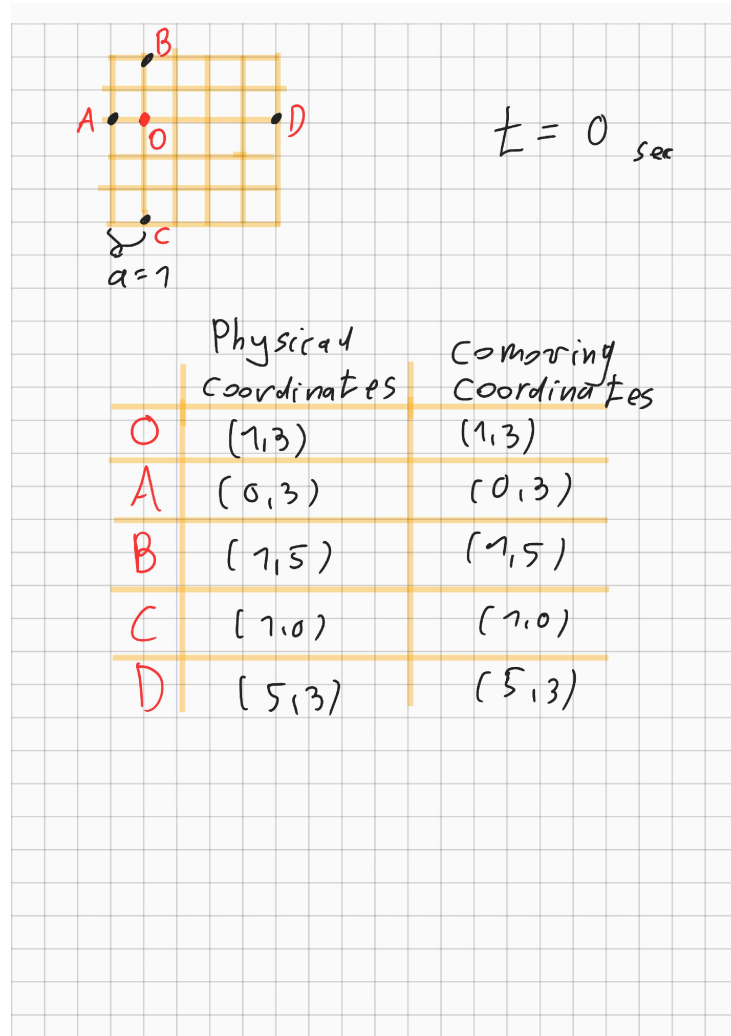 B
A
O
D
t = 0 sec
C
a = 1
Physical
Coordinates
Comoving
Coordinates
O (1,3) (1,3)
A (0,3) (0,3)
B (1,5) (1,5)
C (1,0) (1,0)
D (5,3) (5,3)